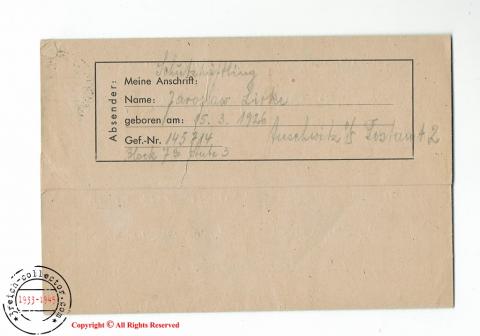 Schutzhäftling
Absender:
Meine Anschrift:
Name: Jaroslaw
geboren am: 15. 3. 1926
Gef.-Nr. 145714 Auschwitz Postamt 2
Block 7a Stube 3
reich-collector.com
1933-1945
Copyright © All Rights Reserved